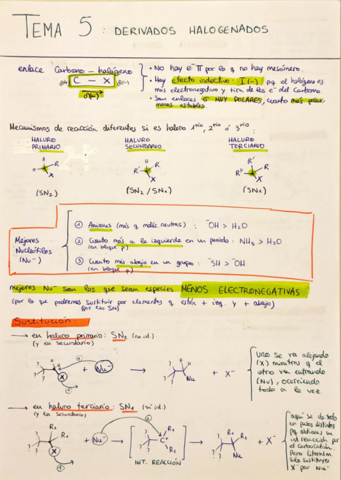 TEMA 5 : DERIVADOS HALOGENADOS
enlace Carbono - halógeno
C - X
δ(+) δ(-)
• No hay e⁻ π por lo q no hay mesómero.
• Hay efecto inductivo: I(-) pq el halógeno es
más electronegativo y tira de los e⁻ del Carbono
• Son enlaces σ MUY POLARES, cuanto más polar
menos estables.
Mecanismos de reacción diferentes si es haluro 1ario, 2ario ó 3ario:
HALURO PRIMARIO
HALURO SECUNDARIO
HALURO TERCIARIO
(SN2)
(SN2 / SN1)
(SN1)
Mejores
Nucleófilos
(Nu⁻)
① Aniones (más q moléc neutras) : ⁻OH > H₂O
② Cuanto más a la izquierda en un periodo : NH₃ > H₂O
(en bloque p)
③ Cuanto más abajo en un grupo : ⁻SH > ⁻OH
(en bloque p)
mejores Nu⁻ son los que sean especies MENOS ELECTRONEGATIVAS
(por lo que podremos sustituir por elementos q estén + izq. y + abajo)
Sustitución
→ en haluro primario: SN2
(y en secundario)
+ Nu⁻ → + X⁻
Uno se va alejando
(X) mientras q el
otro va entrando
(Nu), ocurriendo
todo a la vez
→ en haluro terciario: SN1
(y en secundario)
+ Nu⁻ → → + X⁻
INT. REACCIÓN
aquí se da todo
en pasos distintos
pq obtienes un
int reacción por
el carbocatión.
X por Nu⁻